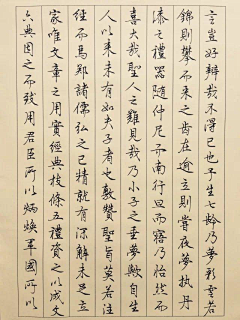 言豈好辯哉不得已也予生七齡乃夢彩雲若
錦則攀而采之齒在逾立則嘗夜夢執丹
漆之禮器隨仲尼而南行旦而寤乃怡然而
喜大哉聖人之難見哉乃小子之垂夢歟自生
人以來未有如夫子者也敷贊聖旨莫若注
經而馬鄭諸儒弘之已精就有深解未足立
家唯文章之用實經典枝條五禮資之以成文
六典因之而致用君臣所以炳煥軍國所以